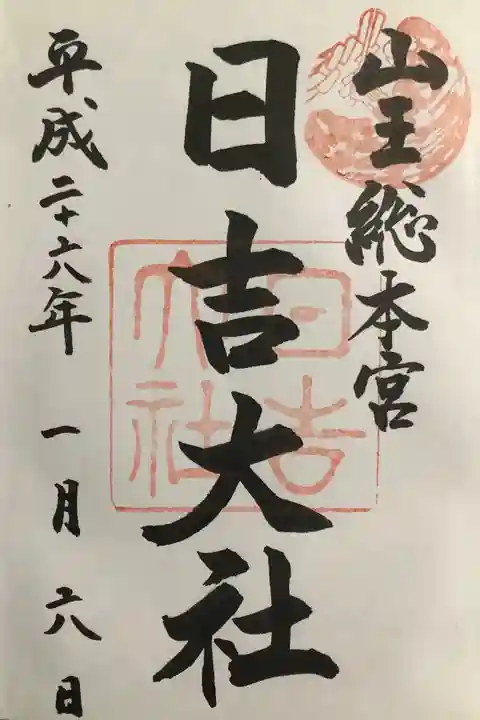 山王総本宮
日吉大社
日吉
大社
平成二十六年 一月 六日